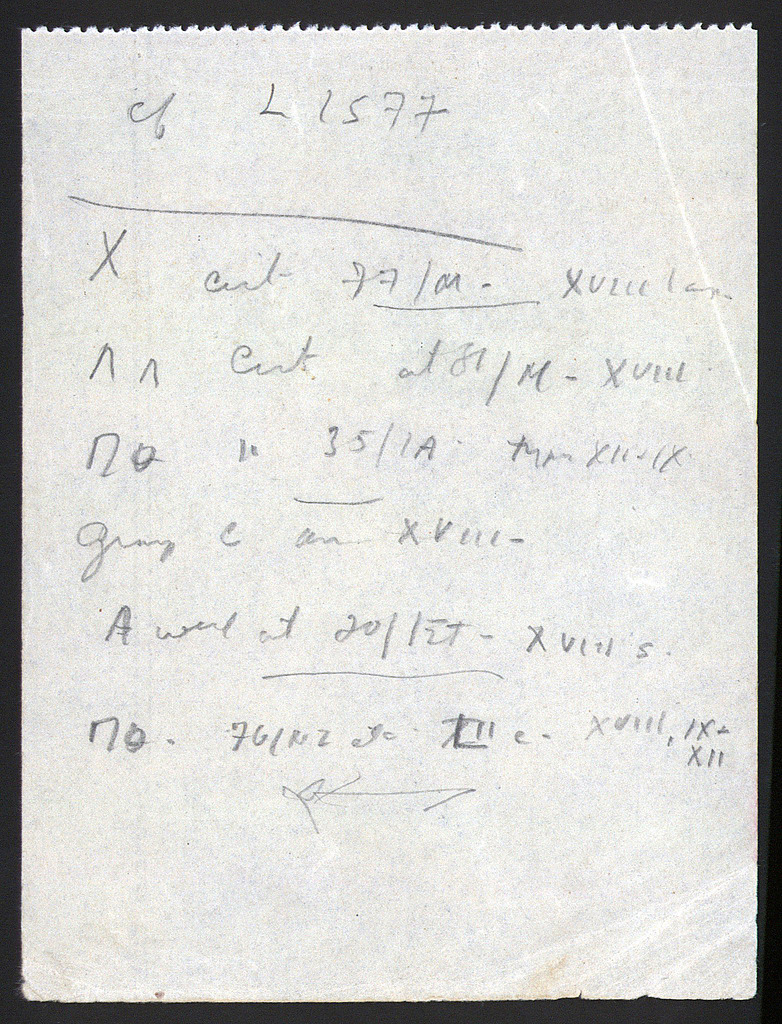 cf L 1577
X cist 77/M - XVIII
Λ Λ Cist at 81/M - XVIII
Π Θ " 35/1A XII-IX
Group C an XVIII -
A well at 20/1ET - XVIII s.
Π Θ - III c - XVIII, IX-
XII